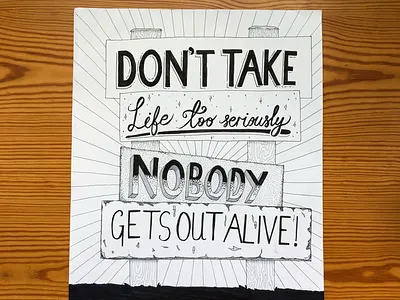 DON'T TAKE
Life too seriously
NOBODY
GETS OUT ALIVE!